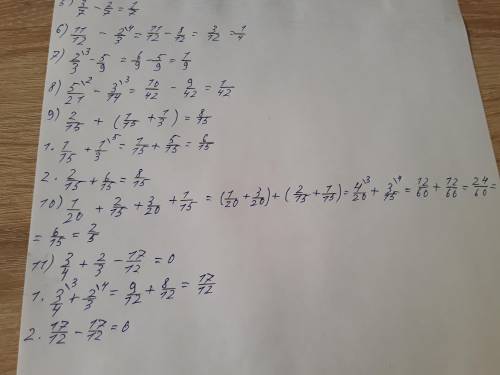 5) 3/7 - 2/7 = 1/7
6) 11/12 - 2/3\4 = 11/12 - 8/12 = 3/12 = 1/4
7) 2/3\3 - 5/9 = 6/9 - 5/9 = 1/9
8) 5/21\2 - 3/14\3 = 10/42 - 9/42 = 1/42
9) 2/15 + (1/15 + 1/3) = 8/15
1. 1/15 + 1/3\5 = 1/15 + 5/15 = 6/15
2. 2/15 + 6/15 = 8/15
10) 1/20 + 2/15 + 3/20 + 1/15 = (1/20 + 3/20) + (2/15 + 1/15) = 4/20\3 + 3/15\4 = 12/60 + 12/60 = 24/60 =
= 6/15 = 2/5
11) 3/4 + 2/3 - 17/12 = 0
1. 3/4\3 + 2/3\4 = 9/12 + 8/12 = 17/12
2. 17/12 - 17/12 = 0